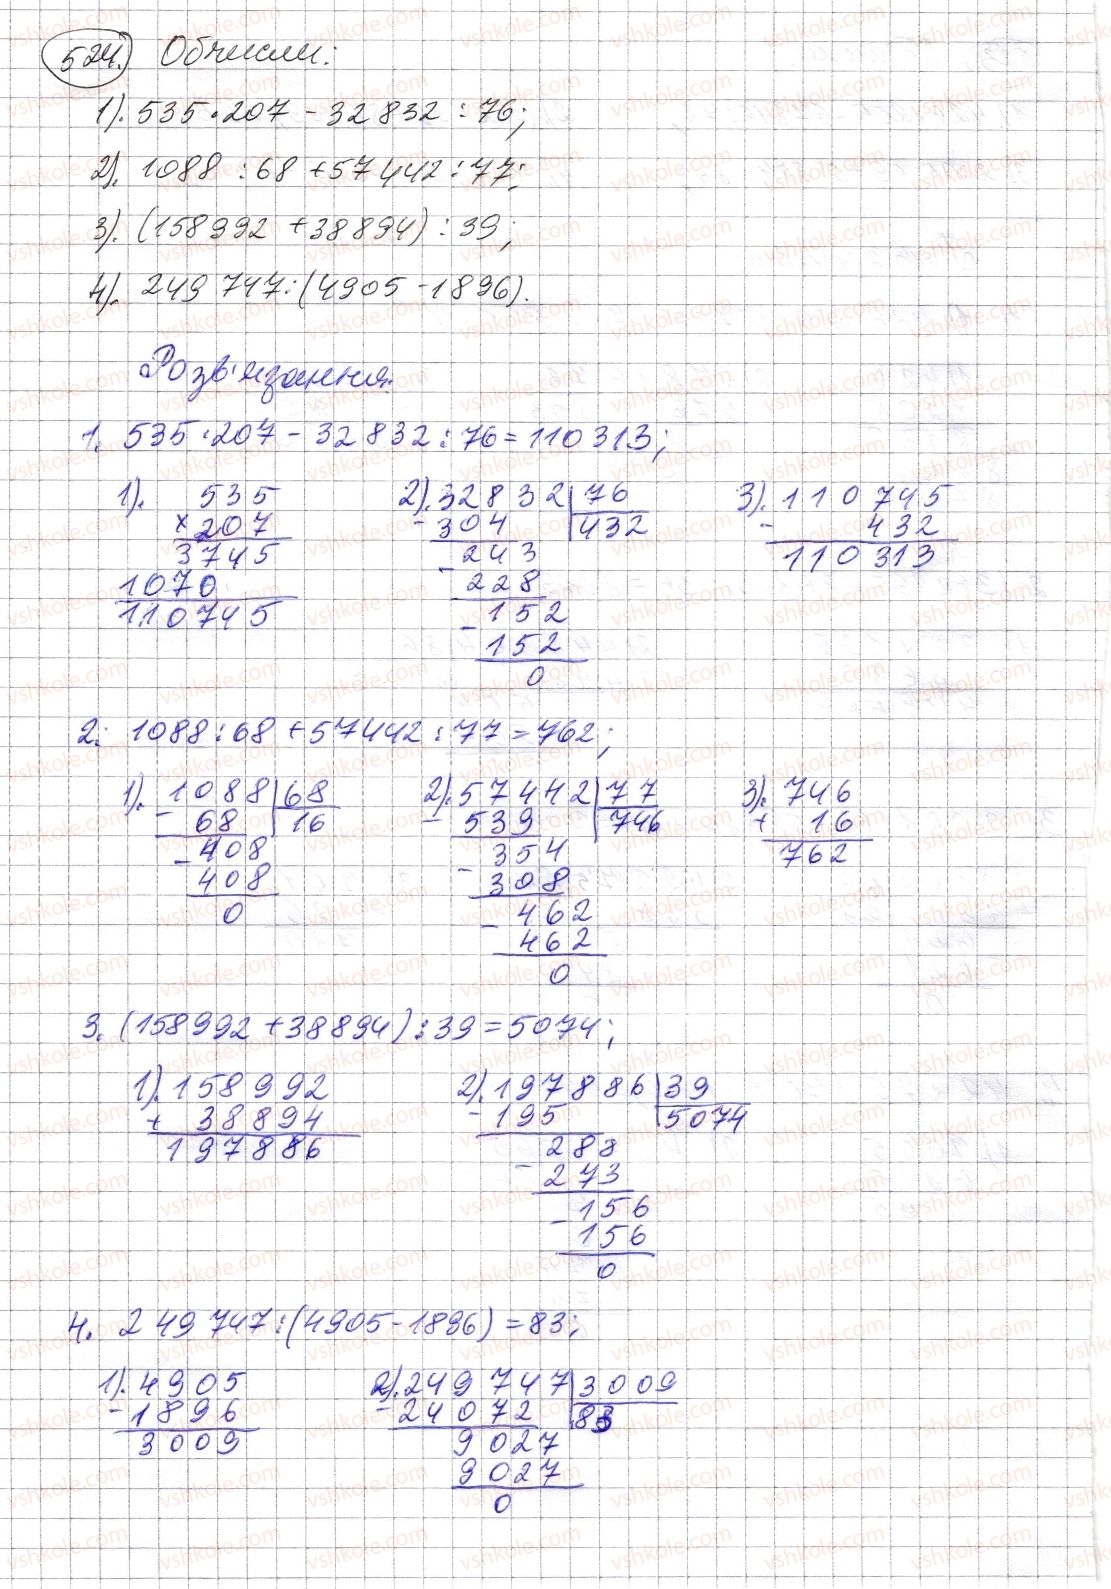 524. Обчисли:
1). 535·207 - 32 832 : 76;
2). 1088 : 68 + 57 442 : 77;
3). (158992 + 38894) : 39;
4). 249 747 : (4905 - 1896).
Розв'язання.
1. 535·207 - 32 832 : 76 = 110 313;
1). 535
× 207
3745
1070
110745
2). 32832 | 76
- 304 | 432
243
- 228
152
- 152
0
3). 110 745
- 432
110 313
2. 1088 : 68 + 57442 : 77 = 762;
1). 1088 | 68
- 68 | 16
408
- 408
0
2). 57442 | 77
- 539 | 746
354
- 308
462
- 462
0
3). 746
+ 16
762
3. (158992 + 38894) : 39 = 5074;
1). 158992
+ 38894
197886
2). 197886 | 39
- 195 | 5074
288
- 273
156
- 156
0
4. 249 747 : (4905 - 1896) = 83;
1). 4905
- 1896
3009
2). 249 747 | 3009
- 24072 | 83
9027
9027
0
vshkole.com